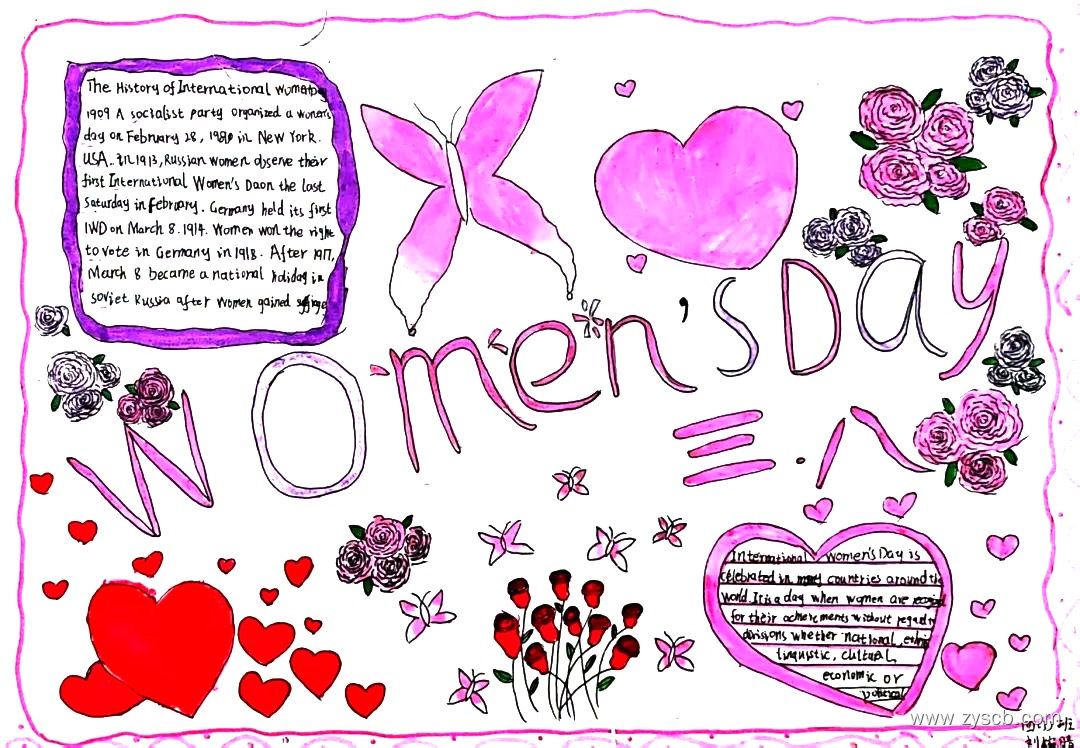 The History of International Womensday
1909 A socialist party organized a women's
day on February 28, in New York.
USA. In 1913, Russian women observe their
first International Women's Daon the last
Saturday in February. Germany held its first
IWD on March 8. 1914. Women won the right
to vote in Germany in 1918. After 1917,
March 8 became a national holiday in
soviet Russia after women gained suffrage
Women's Day
三·八
International Women's Day is
celebrated in many countries around the
world. It is a day when women are
for their achievements without regard
divisions whether national, ethnic
linguistic, cultural,
economic or
political
www.zyscb.com
班